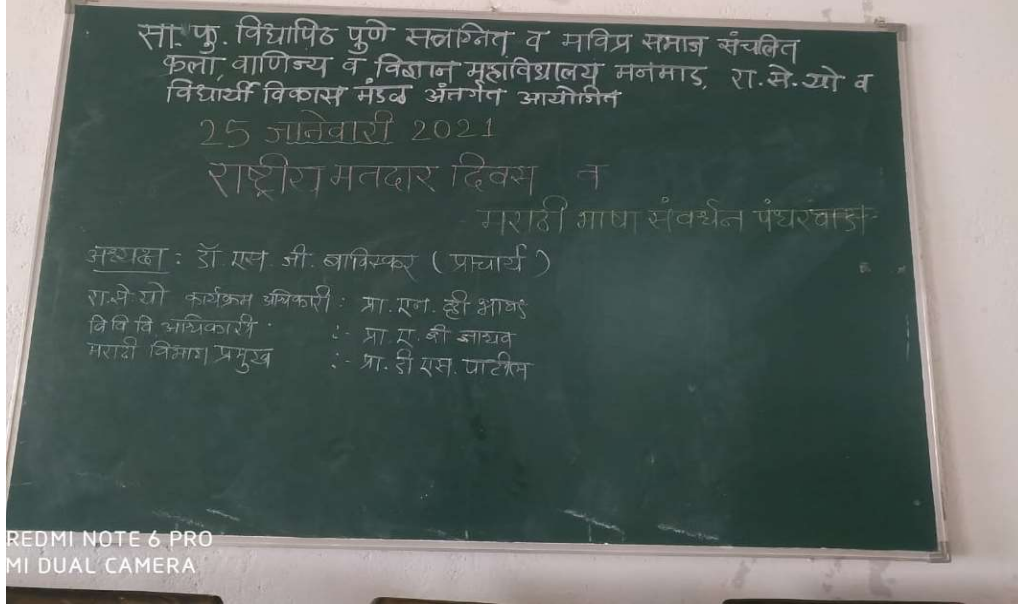 सा. फु. विद्यापिठ पुणे सलग्नित व मविप्र समाज संचलित
कला, वाणिज्य व विज्ञान महाविद्यालय मनमाड, रा.से.यो व
विद्यार्थी विकास मंडळ अंतर्गत आयोजित
25 जानेवारी 2021
राष्ट्रीय मतदार दिवस व
मराठी भाषा संवर्धन पंधरवाडा
अध्यक्ष : डॉ. एस. जी. बाविस्कर ( प्राचार्य )
रा.से.यो कार्यक्रम अधिकारी : प्रा. एन. व्ही
वि वि वि अधिकारी :- प्रा. ए. व्ही जाधव
मराठी विभाग प्रमुख :- प्रा. डी एस. पाटील
REDMI NOTE 6 PRO
MI DUAL CAMERA